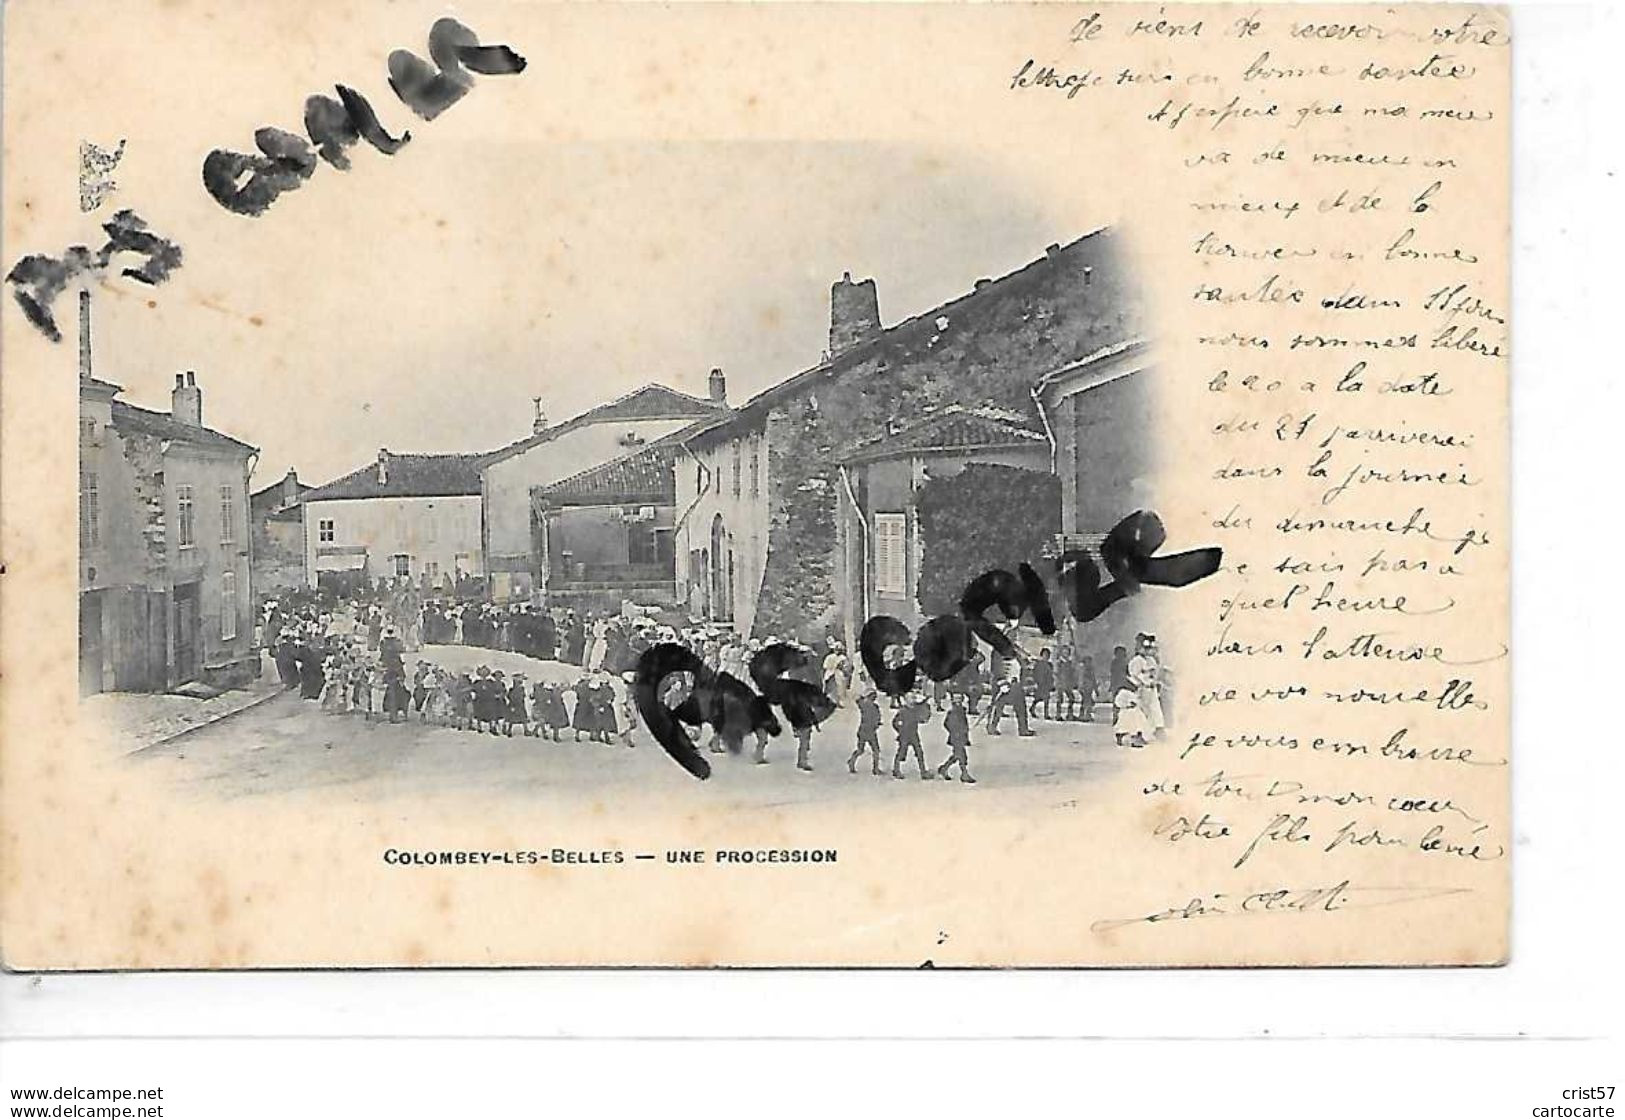 Je viens de recevoir votre
lettre je suis en bonne santée
et j'espère que ma mère
va de mieux en
mieux et de la
trouver en bonne
santée dans 11 jours
nous sommes libéré
le 20 a la date
du 21 j'arriverai
dans la journée
du dimanche je
ne sais pas a
quel heure
dans l'attende
de vos nouvelles
je vous embrasse
de tout mon cœur
votre fils pour la vie
COLOMBEY-LES-BELLES — UNE PROCESSION
PAS COPIER
www.delcampe.net
www.delcampe.net
crist57
cartocarte